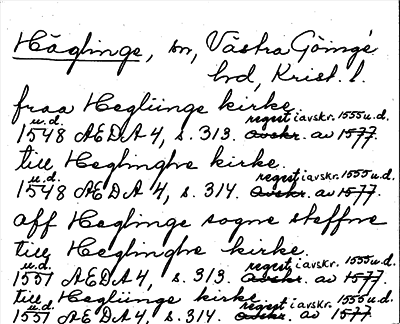 Häglinge, sn, Västra Göinge
hd, Krist. l.
fraa Hegliinge kirke
u.d. regest i avskr. 1555 u.d.
1548 AEDA 4, s. 313. Avskr. av 1577.
till Heglinghe kirke.
u.d. regest i avskr. 1555 u.d.
1548 AEDA 4, s. 314. Avskr. av 1577.
aff Heglinge sogne steffne
till Heglinghe kirke.
u.d. regest i avskr. 1555 u.d.
1551 AEDA 4, s. 313. Avskr. av 1577.
till Hegliinge kirke
u.d. regest i avskr. 1555 u.d.
1551 AEDA 4, s. 314. Avskr. av 1577.